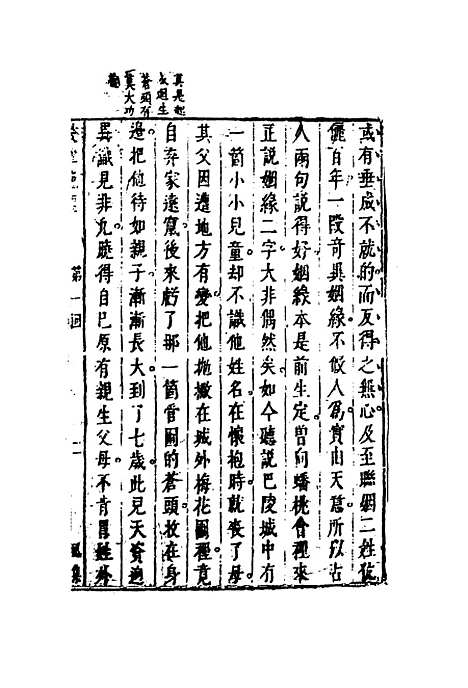 真是起
死迴生
蒼頭有
一莫大功
或有垂成不就的而反得之無心及至聯姻二姓伉
儷百年一段奇異姻緣不繇人為實由天意所以古
人兩句說得好姻緣本是前生定曾向蟠桃會裡來
正說姻緣二字大非偶然矣如今聽說巴陵城中有
一箇小小兒童却不識他姓名在懷抱時就喪了母
其父因遭地方有變把他拋撇在城外梅花園裡竟
自弃家遠竄後來虧了那一箇管園的蒼頭收在身
邊把他待如親子漸漸長大到了七歲此兒天資迥
異識見非凡曉得自己原有親生父母不肯冒姓外
第一回